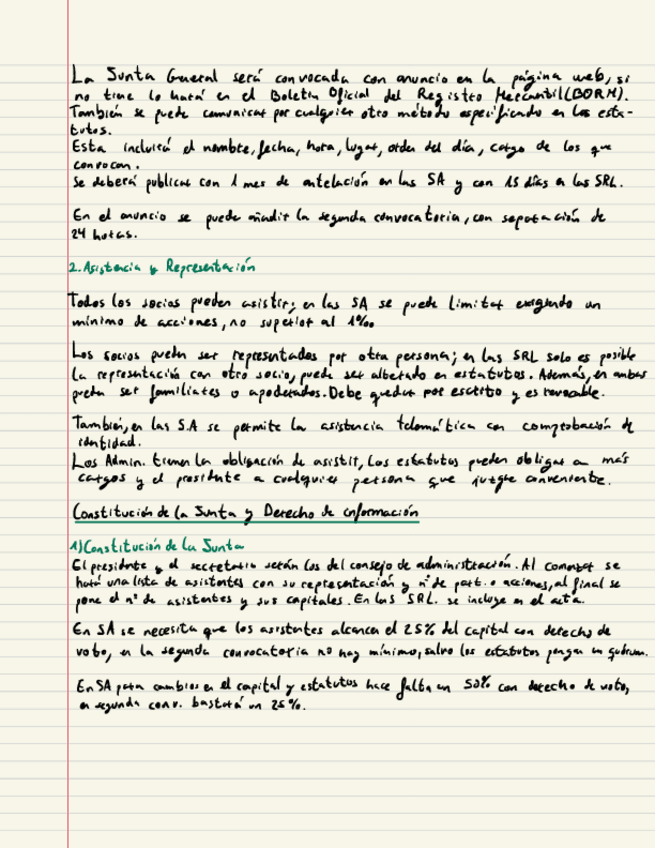 La Junta General será convocada con anuncio en la página web, si
no tiene lo hará en el Boletín Oficial del Registro Mercantil (BORM).
También se puede comunicar por cualquier otro método especificado en los esta-
tutos.
Esta incluirá el nombre, fecha, hora, lugar, orden del día, cargo de los que
convocan.
Se deberá publicar con 1 mes de antelación en las SA y con 15 días en las SRL.
En el anuncio se puede añadir la segunda convocatoria, con separación de
24 horas.
2. Asistencia y Representación
Todos los socios pueden asistir; en las SA se puede limitar exigiendo un
mínimo de acciones, no superior al 1‰
Los socios pueden ser representados por otra persona; en las SRL solo es posible
la representación con otro socio, puede ser alterado en estatutos. Además, en ambas
pueden ser familiares o apoderados. Debe quedar por escrito y es revocable.
También, en las S.A se permite la asistencia telemática con comprobación de
identidad.
Los Admin. tienen la obligación de asistir, los estatutos pueden obligar a más
cargos y el presidente a cualquier persona que juzgue conveniente.
Constitución de la Junta y Derecho de información
1) Constitución de la Junta
El presidente y el secretario serán los del consejo de administración. Al comenzar se
hará una lista de asistentes con su representación y nº de part. o acciones, al final se
pone el nº de asistentes y sus capitales. En las SRL. se incluye en el acta.
En SA se necesita que los asistentes alcancen el 25% del capital con derecho de
voto, en la segunda convocatoria no hay mínimo, salvo los estatutos pongan un quórum.
En SA para cambios en el capital y estatutos hace falta un 50% con derecho de voto,
en segunda conv. bastará un 25%.